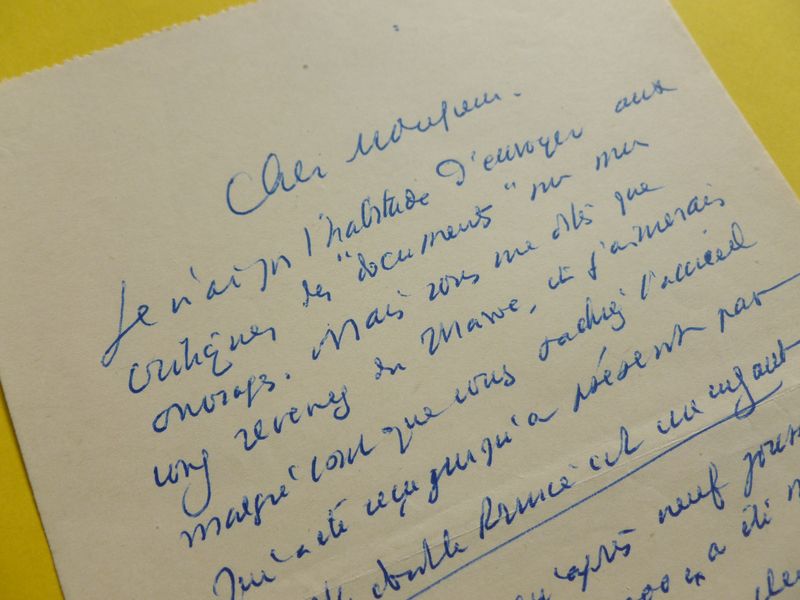 Cher Monsieur.
Je n'ai pas l'habitude d'envoyer aux
critiques des "documents" sur mes
ouvrages. Mais vous me dites que
vous revenez du Maroc, et j'aimerais
malgré tout que vous sachiez l'accueil
qui a été reçu jusqu'à présent par
double est un
qu'après neuf jours
a été